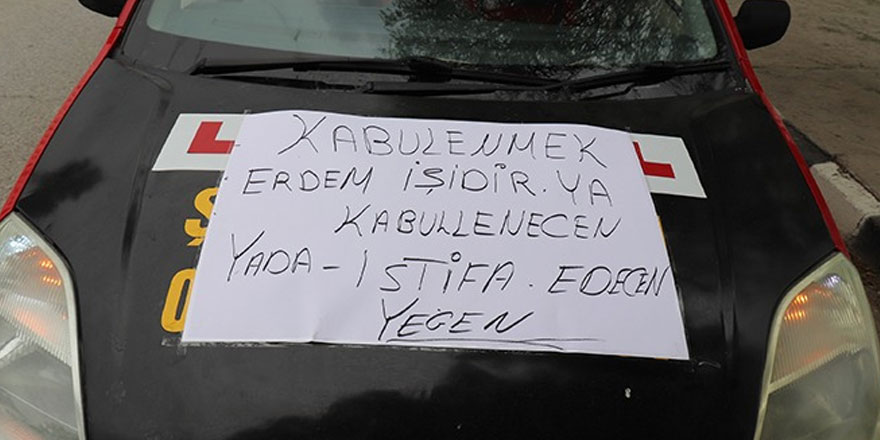 KABULENMEK
ERDEM İŞİDİR. YA
KABULLENECEN
YADA - İSTİFA. EDECEN
YEĞEN
L L
Ş